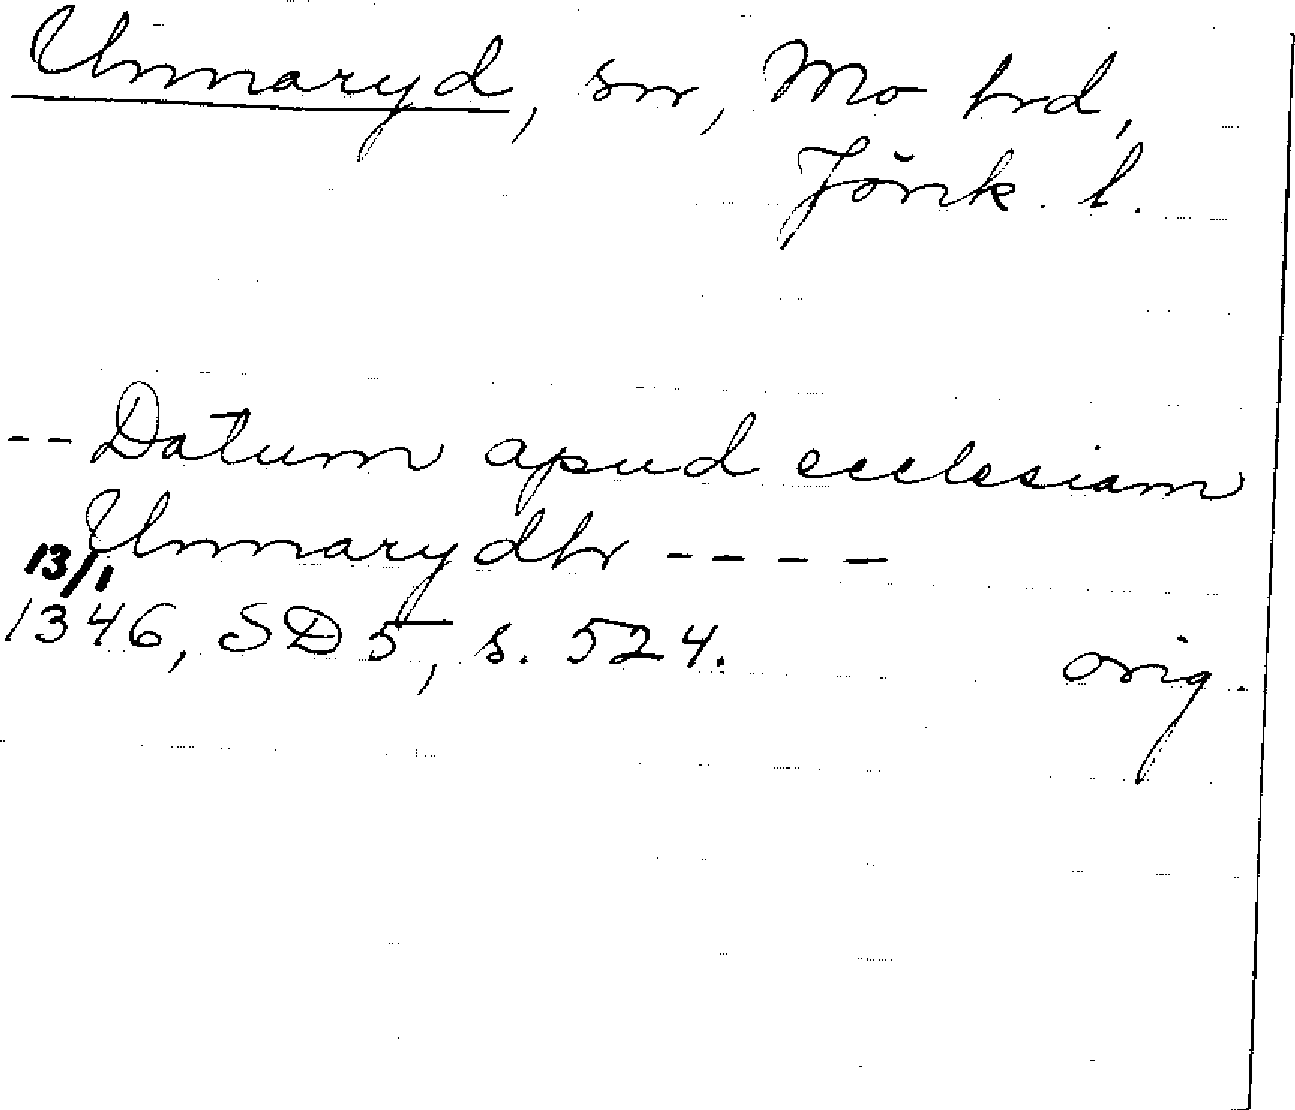 Unnaryd, sn, Mo hd,
Jönk. l.
-- Datum apud ecclesiam
Unnarydhr ----
13/1
1346, SD 5, s. 524. orig.